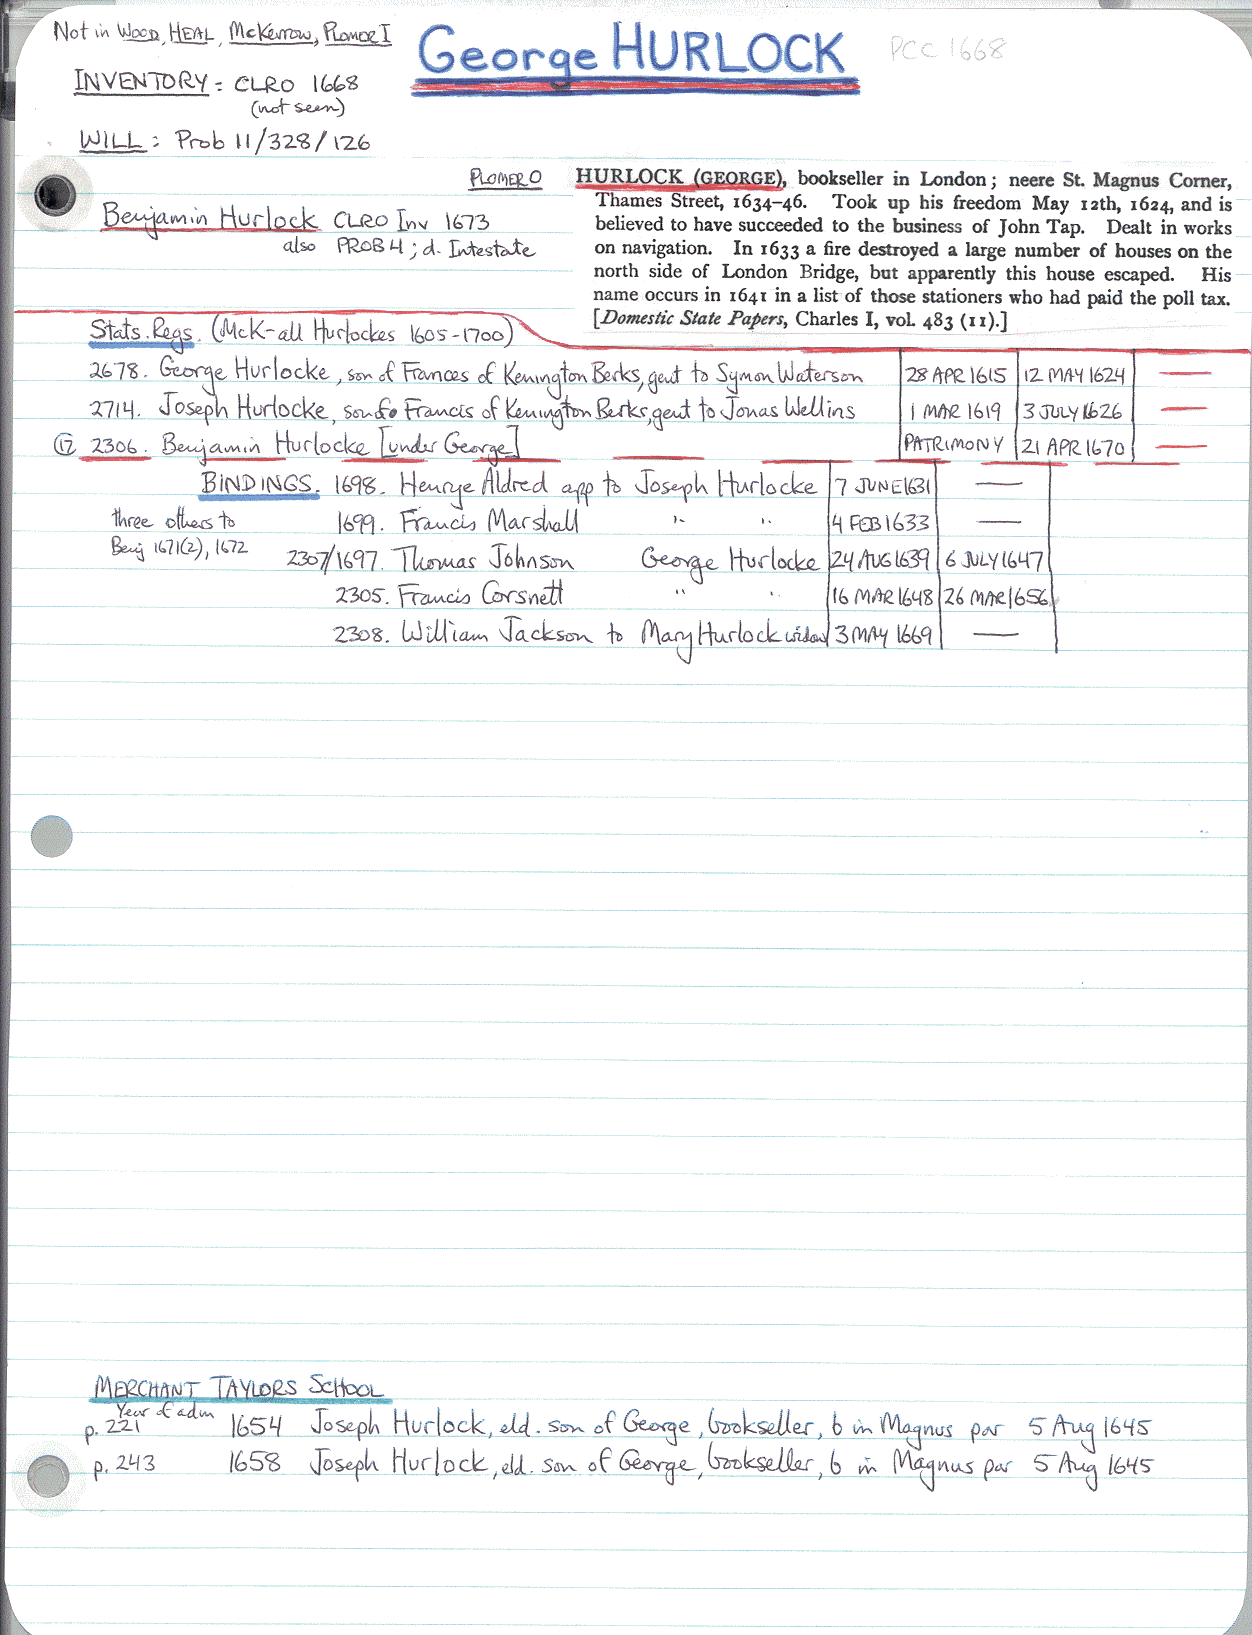 Not in WOOD, HEAL, McKerrow, PLOMER I
George HURLOCK
PCC 1668
INVENTORY: CLRO 1668
(not seen)
WILL: Prob 11/328/126
PLOMER O
HURLOCK (GEORGE), bookseller in London; neere St. Magnus Corner,
Thames Street, 1634–46. Took up his freedom May 12th, 1624, and is
believed to have succeeded to the business of John Tap. Dealt in works
on navigation. In 1633 a fire destroyed a large number of houses on the
north side of London Bridge, but apparently this house escaped. His
name occurs in 1641 in a list of those stationers who had paid the poll tax.
[Domestic State Papers, Charles I, vol. 483 (11).]
Benjamin Hurlock CLRO Inv 1673
also PROB 4; d. Intestate
Stats. Regs. (McK-all Hurlockes 1605-1700)
2678. George Hurlocke, son of Frances of Kenington Berks, gent to Symon Waterson 28 APR 1615 12 MAY 1624 —
2714. Joseph Hurlocke, son of Francis of Kenington Berks, gent to Jonas Wellins 1 MAR 1619 3 JULY 1626 —
2306. Benjamin Hurlocke [under George] PATRIMONY 21 APR 1670 —
BINDINGS. 1698. Henrye Aldred app to Joseph Hurlocke 7 JUNE 1631 —
three others to 1699. Francis Marshall " " 4 FEB 1633 —
Benj 1671(2), 1672
2307/1697. Thomas Johnson George Hurlocke 24 AUG 1639 6 JULY 1647
2305. Francis Corsnett " " 16 MAR 1648 26 MAR 1656
2308. William Jackson to Mary Hurlock widow 3 MAY 1669 —
MERCHANT TAYLORS SCHOOL
Year of adm
p. 221 1654 Joseph Hurlock, eld. son of George, bookseller, b in Magnus par 5 Aug 1645
p. 243 1658 Joseph Hurlock, eld. son of George, bookseller, b in Magnus par 5 Aug 1645